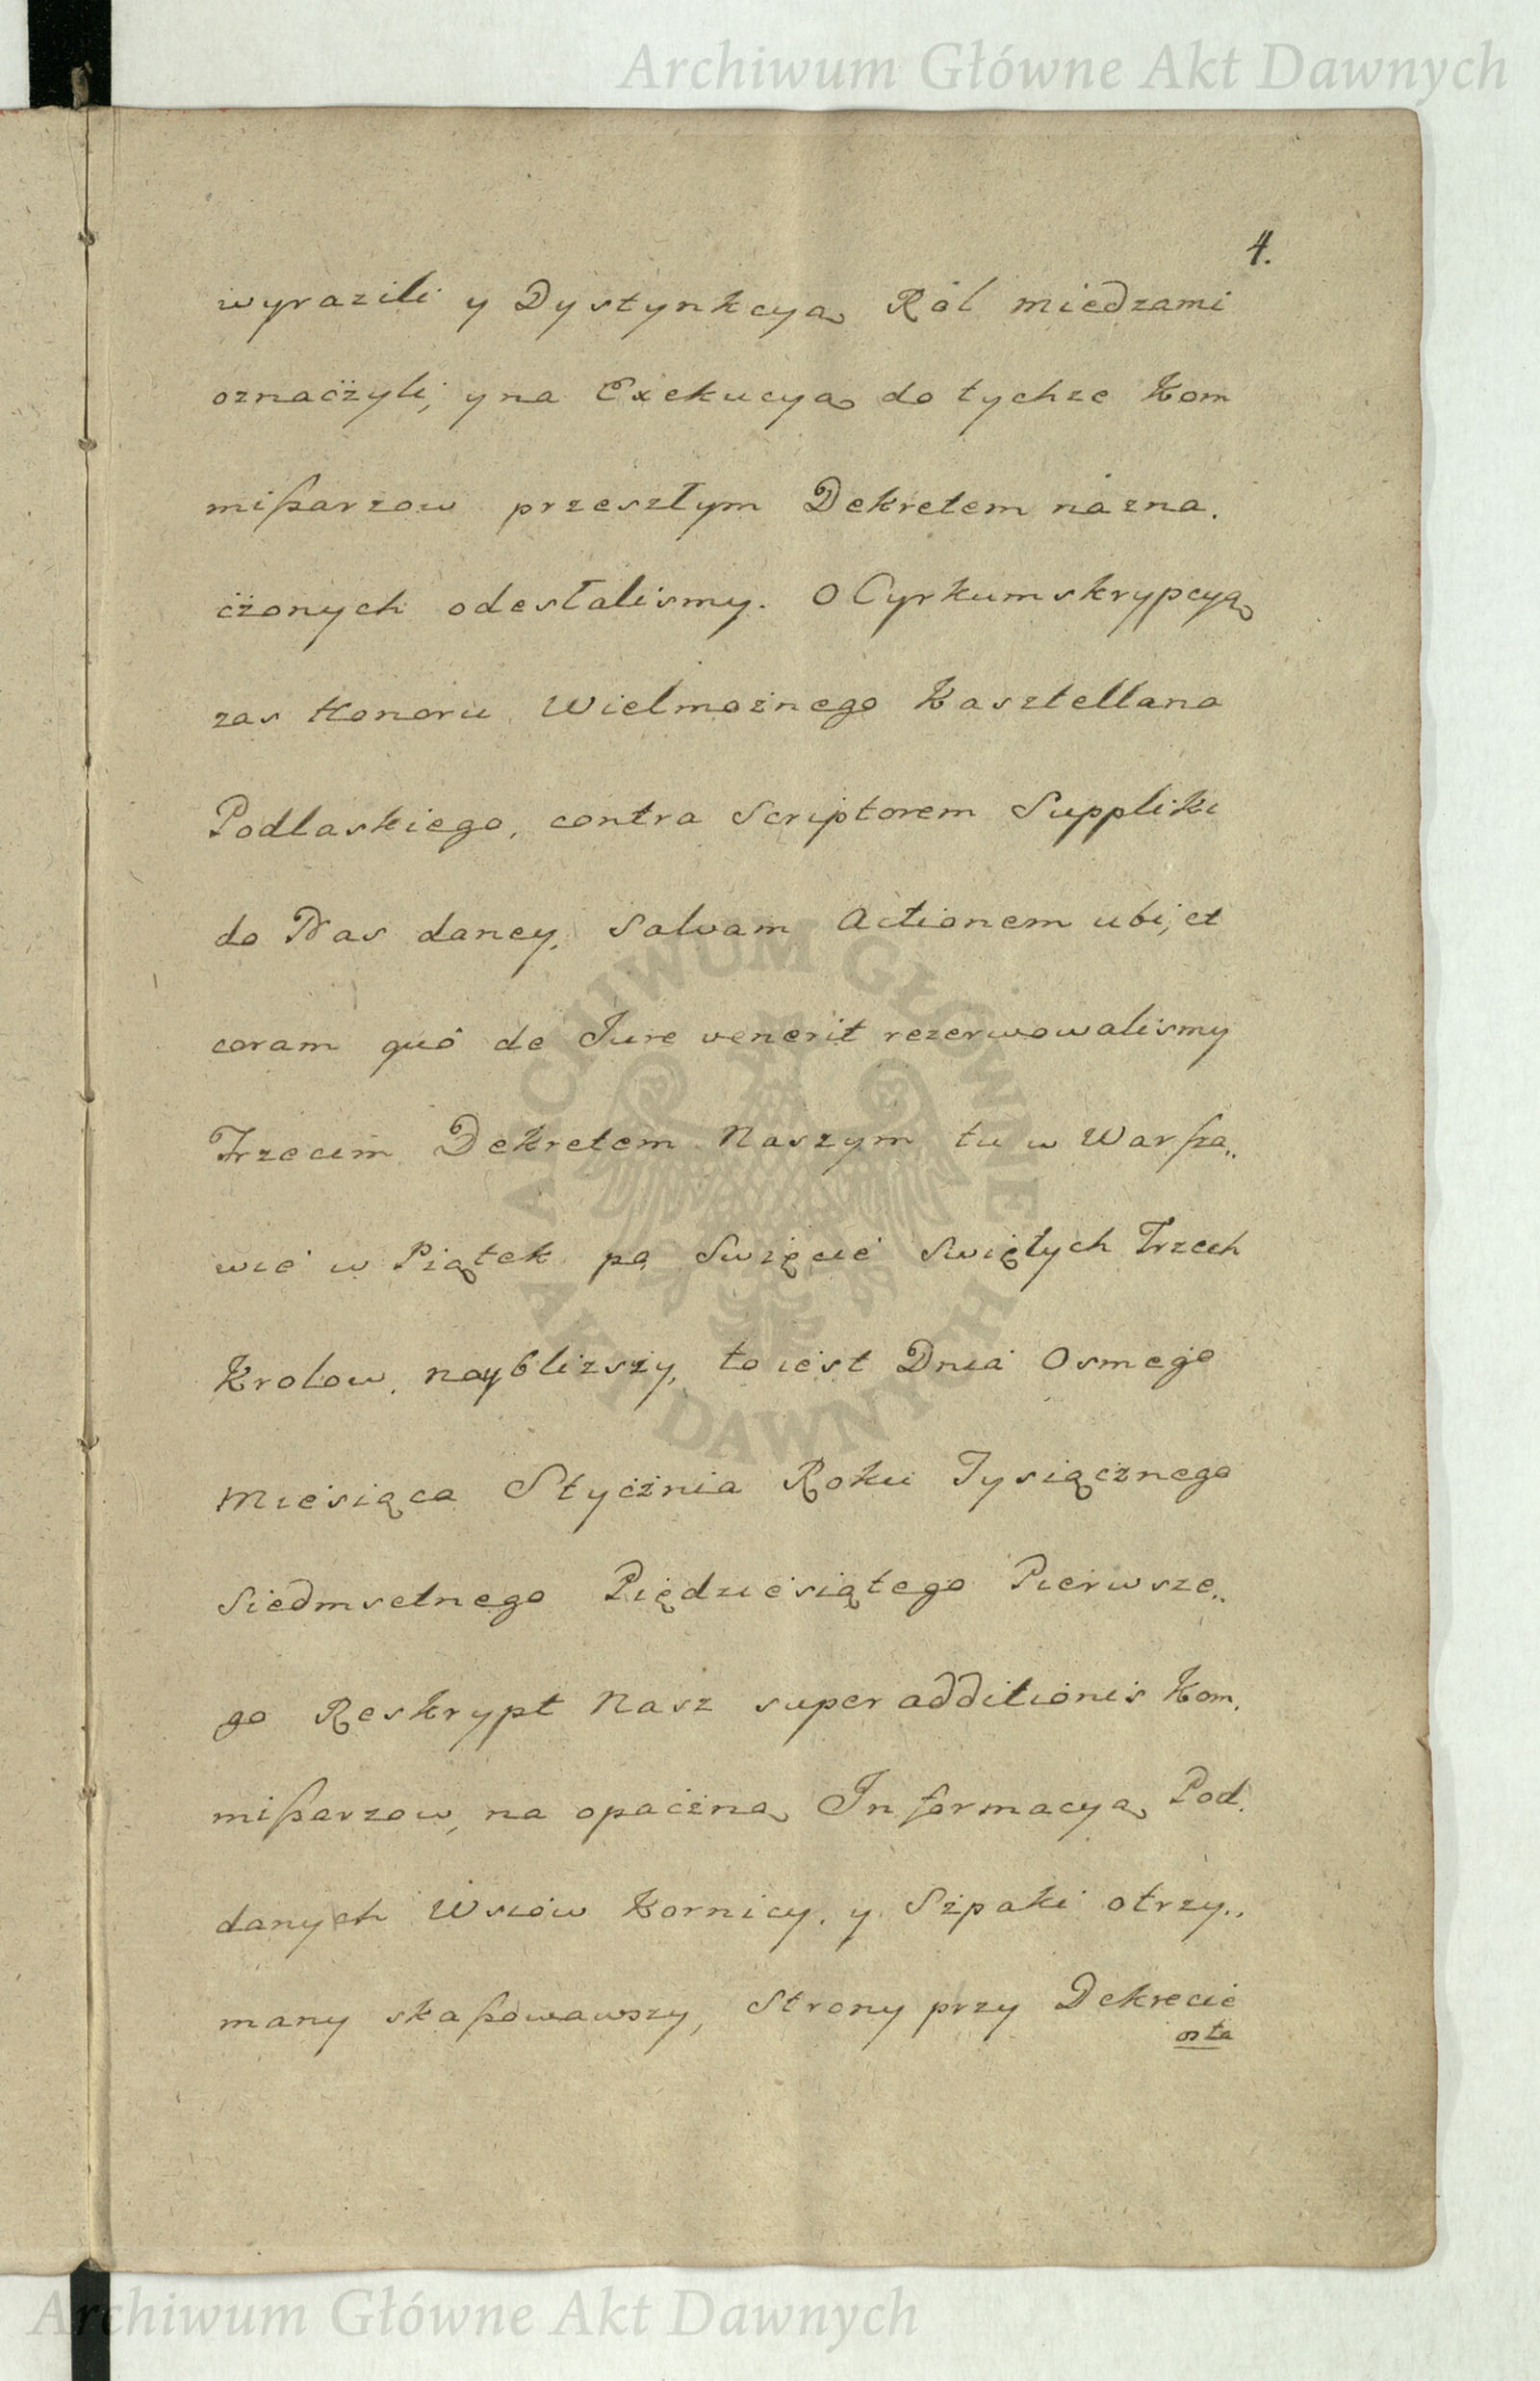 Archiwum Główne Akt Dawnych
4.
wyrazili y Dystynkcyą Ról miedzami
oznaczyli, y na Exekucyą do tychze Kom
mißarzow przeszłym Dekretem nazna.
czonych odesłalismy. O Cyrkumskrypcyą
zas Honoru Wielmożnego Kasztellana
Podlaskiego, contra Scriptorem Suppliki
do Nas daney, Salvam Actionem ubi, et
coram quô de Jure venerit rezerwowalismy
Trzecim Dekretem Naszym tu w Warſza„
wie w Piątek po Swięcie Swiętych Trzech
Krolow, nayblizszy, to iest Dnia Osmego
Miesiąca Stycznia Roku Tysiącznego
Siedmsetnego Piędziesiątego Pierwsze„
go Reskrypt Nasz superadditionis Kom.
mißarzow, na opaczną Informacyą Pod.
danych Wsiów Kornicy, y Szpaki otrzy„
many skaßowawszy, Strony przy Dekrecie
osta
ARCHIWUM GŁÓWNE
AKT DAWNYCH
Archiwum Główne Akt Dawnych